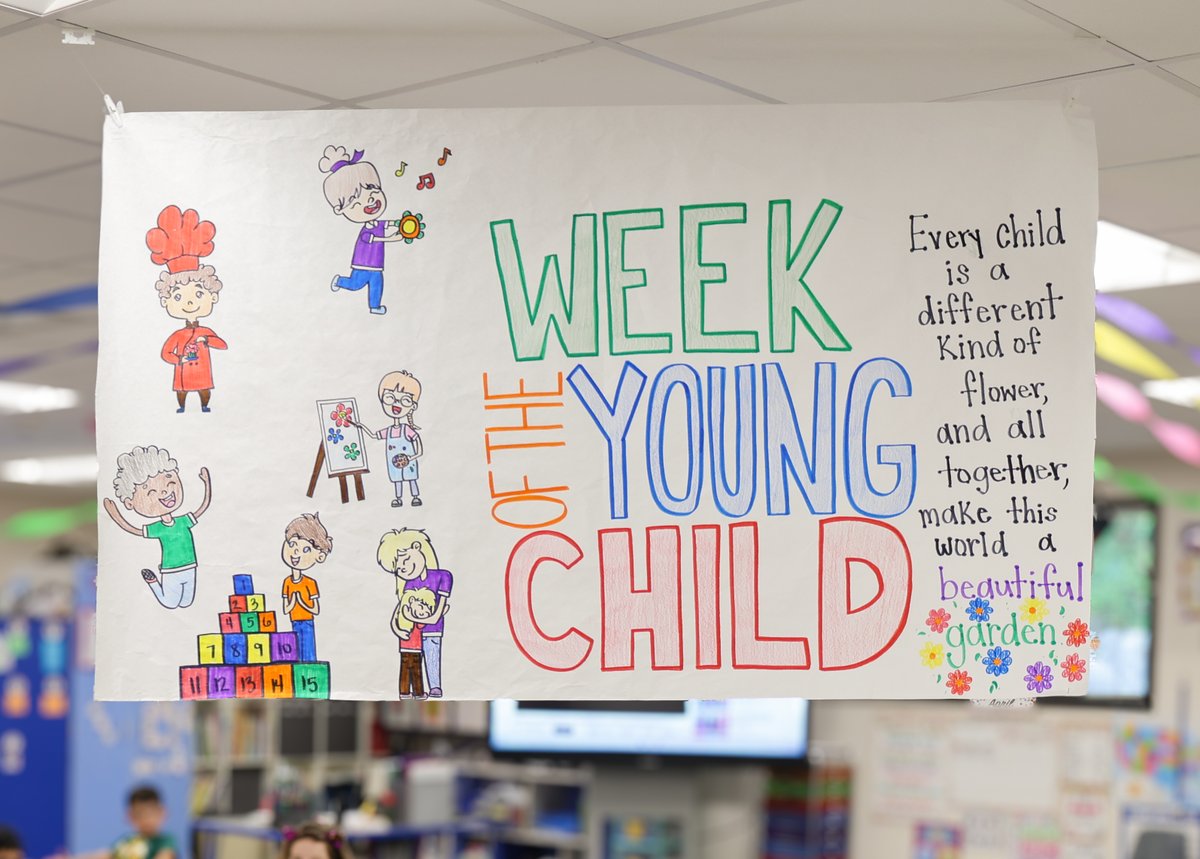 WEEK
OF THE
YOUNG
CHILD
Every child
is a
different
kind of
flower,
and all
together,
make this
world a
beautiful
garden
1
2 3
4 5 6
7 8 9 10
11 12 13 14 15